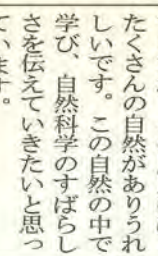 たくさんの自然がありうれ
しいです。この自然の中で
学び、自然科学のすばらし
さを伝えていきたいと思っ
ています。